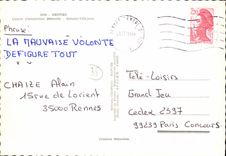 Phrase :
LA MAUVAISE VOLONTE
DEFIGURE TOUT
CHAIZE Alain
15 rue de Lorient
35000 Rennes
Télé-Loisirs
Grand Jeu
Cedex 2597
99239 Paris Concours